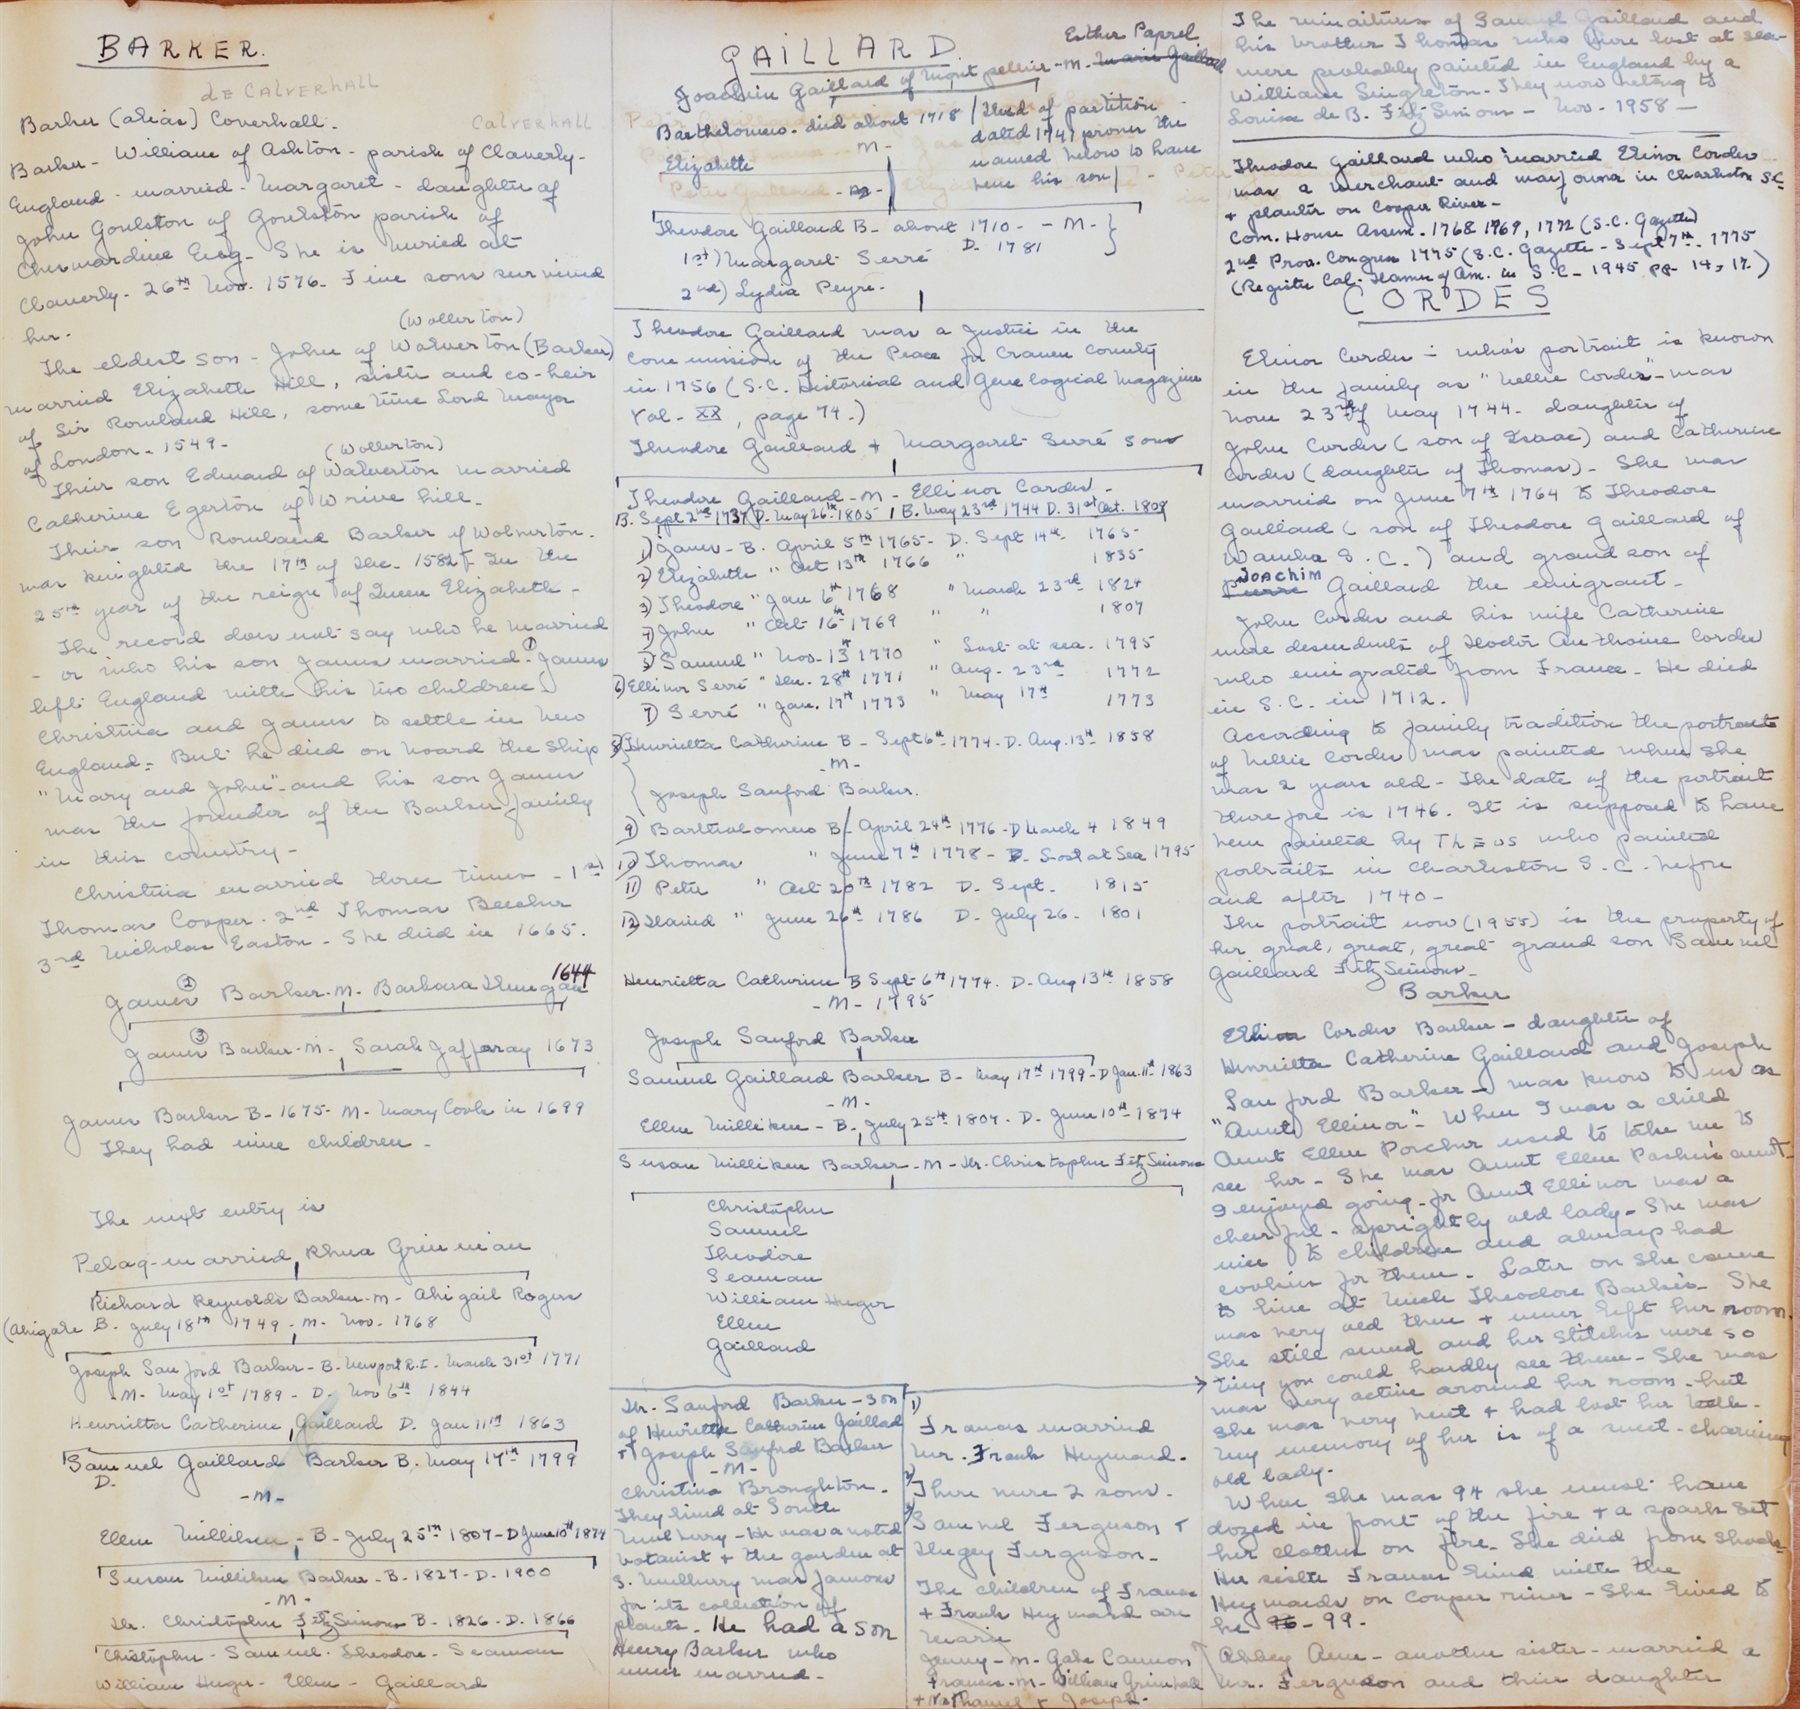 BARKER.
de CALVERHALL
Barker (alias) Coverhall.
CALVERHALL
Barker - William of Ashton - parish of Claverly -
England - married - Margaret - daughter of
John Goulston of Goulston parish of
Cheswardine Esq - She is buried at
Claverly - 26th Nov. 1576 - Five sons survived
her.
(Wollerton)
The eldest son - John of Wolverton (Barker)
married Elizabeth Hill, sister and co-heir
of Sir Rowland Hill, some time Lord Mayor
of London - 1549 -
(Wollerton)
Their son Edward of Walverton married
Catherine Egerton of Wrinehill -
Their son Rowland Barker of Wolverton -
was knighted the 17th of Dec. 1582 In the
25th year of the reign of Queen Elizabeth -
The record does not say who he married
- or who his son James married - ① James
left England with his two children
Christina and James to settle in New
England - But he died on board the ship
"Mary and John" - and his son James
was the founder of the Barker family
in this country -
Christina married three times - 1st
Thomas Cooper - 2nd Thomas Beecher
3rd Nicholas Easton - She died in 1665.
1644
James ② Barker - M - Barbara Dungan
James ③ Barker - M - Sarah Jafferay 1673
James Barker B - 1675 - M - Mary Cook in 1699
They had nine children -
The next entry is
Peleg - married Rhua Grinnian
Richard Reynolds Barker - M - Abigail Rogers
(Abigale B. July 18th 1749 - M - Nov. 1768
Joseph Sanford Barker - B. Newport R.I. - March 31st 1771
- M - May 1st 1789 - D - Nov 6th 1844
Henrietta Catherine Gaillard D. Jan 11th 1863
Samuel Gaillard Barker B. May 17th 1799
D.
- M -
Ellen Milliken - B - July 25th 1807 - D June 10th 1874
Susan Milliken Barker - B - 1827 - D - 1900
- M -
Dr. Christopher FitzSimons B - 1826 - D. 1866
Christopher - Samuel - Theodore - Seaman
William Huger - Ellen - Gaillard
GAILLARD
Esther Paprel
Joachim Gaillard of Montpellier - M - Marie Gaillard
Barthelomew - died about 1718 / Deed of partition
dated 1741 proves the
Elizabeth M - named below to have
been his son /
Peter Gaillard - M - Eliz
Theodore Gaillard B - about 1710 - - M -
1st) Margaret Serré D. 1781
2nd) Lydia Peyre -
Theodore Gaillard was a Justice in the
commission of the Peace for Craven County
in 1756 (S.C. Historical and Genelogical Magazine
Vol - XX, page 74.)
Theodore Gaillard + Margaret Serré sons
Theodore Gaillard - M - Ellinor Cordes -
B. Sept 2nd 1737 D. May 26th 1805 / B. May 23rd 1744 D. 31st Oct. 1808
1) James - B. April 5th 1765 - D. Sept 14th 1765
2) Elizabeth " Oct 13th 1766 " 1835
3) Theodore " Jan 6th 1768 " March 23rd 1824
4) John " Oct 16th 1769 " " 1807
5) Samuel " Nov. 13th 1770 " Lost at sea - 1795
6) Ellinor Serré " Dec. 28th 1771 " Aug - 23rd 1772
7) Serré " Jan. 17th 1773 " May 17th 1773
8) Henrietta Catherine B - Sept 6th 1774 - D. Aug. 13th 1858
- M -
Joseph Sanford Barker.
9) Bartholomew B - April 24th 1776 - D March 4 1849
10) Thomas " June 7th 1778 - Lost at Sea 1795
11) Peter " Oct 20th 1782 D. Sept. 1815
12) David " June 26th 1786 D. July 26 - 1801
Henrietta Catherine B Sept 6th 1774. D. Aug 13th 1858
- M - 1795
Joseph Sanford Barker
Samuel Gaillard Barker B - May 17th 1799 - D Jan. 11th 1863
- M -
Ellen Milliken - B - July 25th 1807 - D. June 10th - 1874
Susan Milliken Barker - M - Dr. Christopher FitzSimons
Christopher
Samuel
Theodore
Seaman
William Huger
Ellen
Gaillard
Dr. Sanford Barker - son
of Henrietta Catherine Gaillard
+ Joseph Sanford Barker
- M -
Christina Broughton.
They lived at South
Mulberry - He was a noted
botanist + the garden at
S. Mulberry was famous
for its collection of
plants - He had a son
Henry Barker who
never married -
1)
Frances married
Mr. Frank Heyward.
2)
There were 2 sons.
3)
Samuel Ferguson +
Dugey Ferguson -
The children of Frances
+ Frank Heyward are
Marie
Jenny - M - Gabe Cannon
Frances - M - William Grimball
+ Nathaniel + Joseph -
The miniatures of Samuel Gaillard and
his brother Thomas who were lost at sea -
were probably painted in England by a
William Singleton - They now belong to
Louisa de B. FitzSimons - Nov - 1958 -
Theodore Gaillard who married Elinor Cordes
was a merchant and wharf owner in Charleston S.C.
+ planter on Cooper River -
Com. House Assem. 1768 1769, 1772 (S.C. Gazette)
2nd Prov. Congress 1775 (S.C. Gazette - Sept 7th - 1775
(Register Col. Dames of Am. in S.C - 1945 pp - 14 + 17.)
CORDES
Elinor Cordes - who's portrait is known
in the family as "Nellie Cordes" - was
born 23rd of May 1744 - daughter of
John Cordes (son of Isaac) and Catherine
Cordes (daughter of Thomas) - She was
married on June 7th 1764 to Theodore
Gaillard (son of Theodore Gaillard of
Wambo S.C.) and grand son of
Joachim
Pierre Gaillard the emigrant -
John Cordes and his wife Catherine
were descendents of Doctor Anthoine Cordes
who emigrated from France - He died
in S.C. in 1712.
According to family tradition the portrait
of Nellie Cordes was painted when she
was 2 years old - The date of the portrait
therefore is 1746. It is supposed to have
been painted by THEUS who painted
portraits in Charleston S.C. before
and after 1740 -
The portrait now (1955) is the property of
her great, great, great grand son Samuel
Gaillard FitzSimons -
Barker
Ellinor Cordes Barker - daughter of
Henrietta Catherine Gaillard and Joseph
Sanford Barker - was know to us as
"Aunt Ellinor" - When I was a child
Aunt Ellen Porcher used to take me to
see her - She was Aunt Ellen Porcher's aunt -
I enjoyed going - for Aunt Ellinor was a
cheerful - sprightly old lady - She was
nice to children and always had
cookies for them - Later on she came
to live at Uncle Theodore Barker's - She
was very old then + never left her room.
She still sewed and her stitches were so
tiny you could hardly see them - She was
was very active around her room - but
she was very bent + had lost her teeth -
My memory of her is of a sweet - charming
old lady -
When she was 94 she must have
dozed in front of the fire + a spark set
her clothes on fire - She died from shock -
Her sister Frances lived with the
Heywards on Cooper river - She lived to
be 96 - 99 -
Abbey Ann - another sister - married a
Mr. Ferguson and their daughter